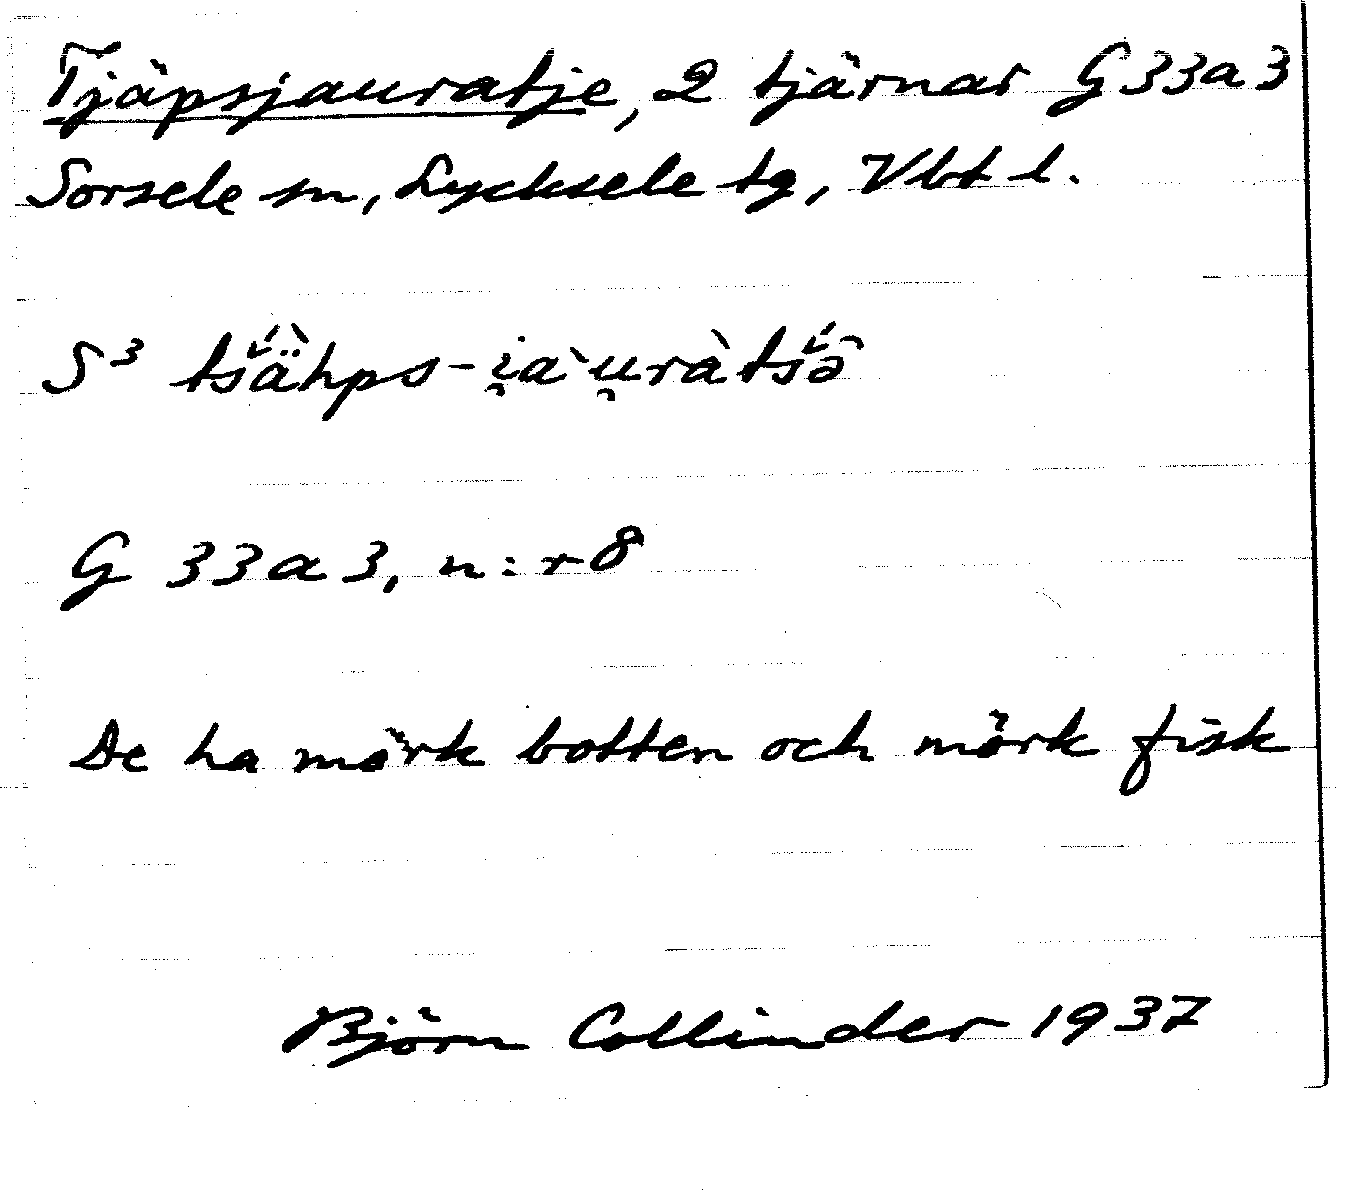 Tjäpsjauratje, 2 tjärnar G 33a3
Sorsele sn, Lycksele tg, Vbt l.
S³ tś̌ä̀hps-i̯aˋu̯ràtś̌ə̑
G 33a3, n:r 8
De ha mörk botten och mörk fisk
Björn Collinder 1937